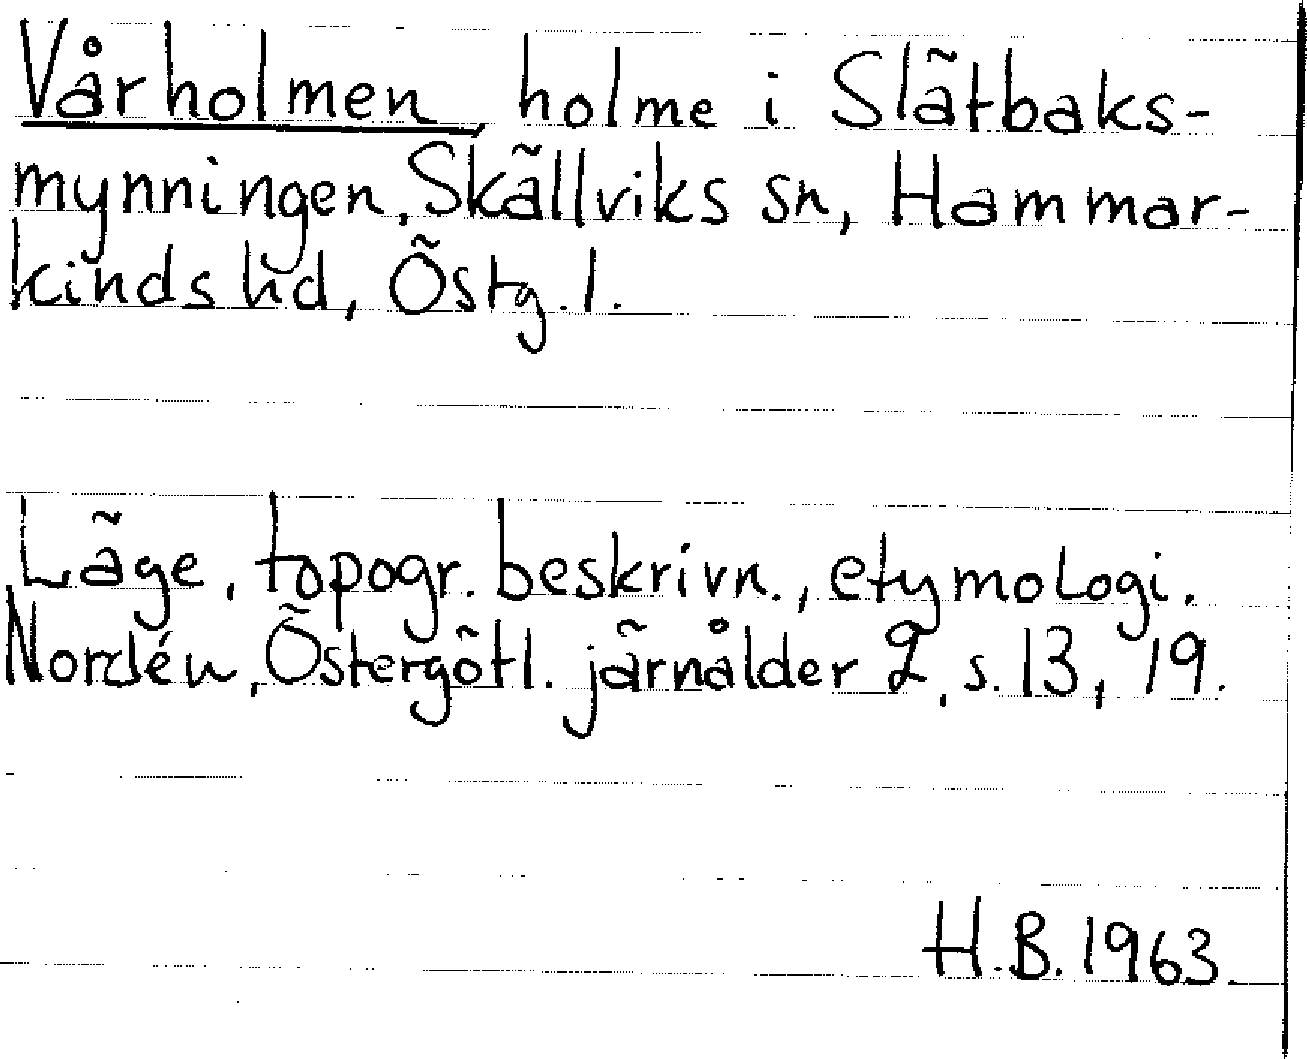 Vårholmen, holme i Slätbaks-
mynningen, Skällviks sn, Hammar-
kinds hd, Östg. l.
Läge, topogr. beskrivn., etymologi.
Nordén, Östergötl. järnålder 2, s. 13, 19.
H.B. 1963.